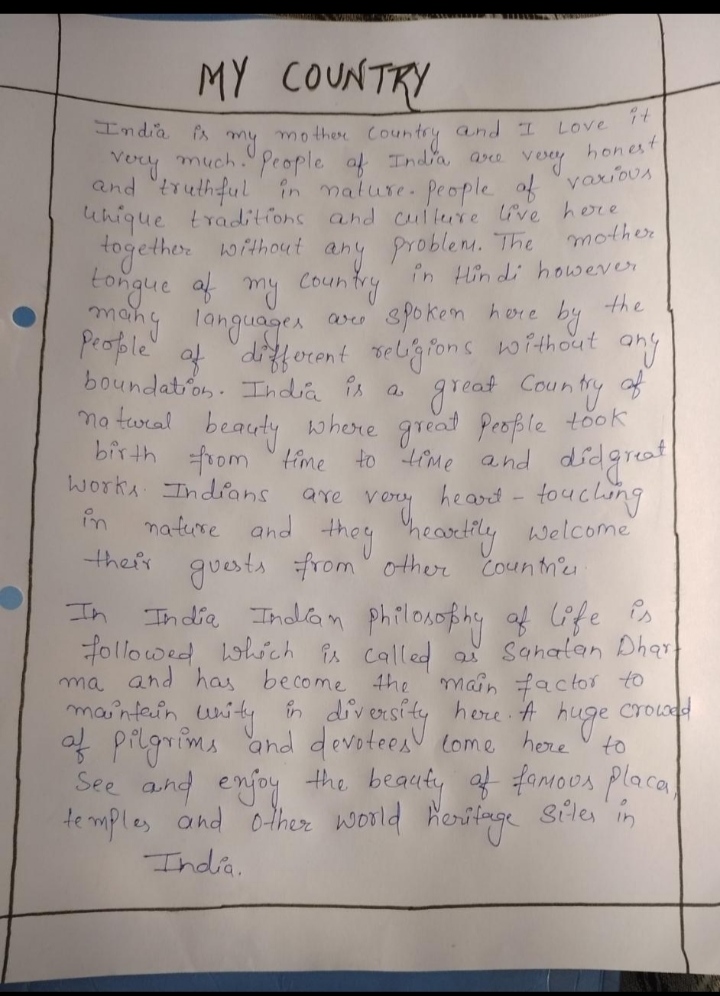 MY COUNTRY
India is my mother Country and I Love it
very much. People of India are very honest
and truthful in nature. people of various
unique traditions and culture live here
together without any problem. The mother
tongue of my Country in Hindi however
many languages are spoken here by the
People of different religions without any
boundation. India is a great Country of
natural beauty where great People took
birth from time to time and did great
works. Indians are very heart-touching
in nature and they heartily welcome
their guests from other Countries.
In India Indian philosophy of life is
followed which is called as Sanatan Dhar-
ma and has become the main factor to
maintain unity in diversity here. A huge crowed
of pilgrims and devotees come here to
See and enjoy the beauty of famous Places,
temples and other world heritage Sites in
India.